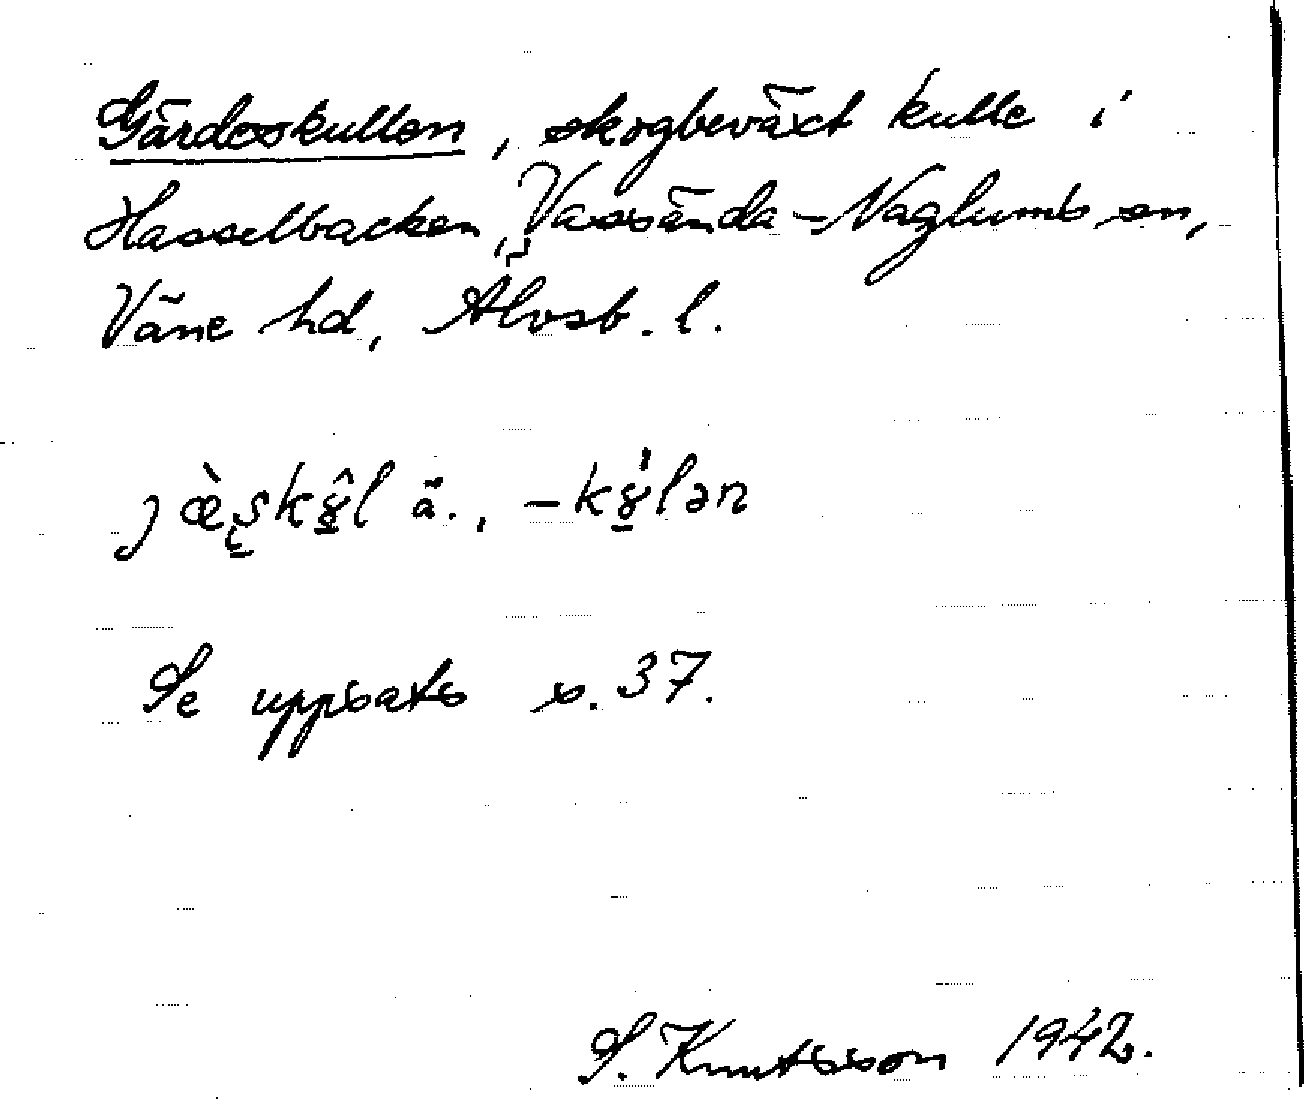 Gärdeskullen, skogbeväxt kulle i
Hasselbacken, Vassända-Naglums sn,
Väne hd, Älvsb. l.
ä., -
Se uppsats s. 37.
S. Knutsson 1942.